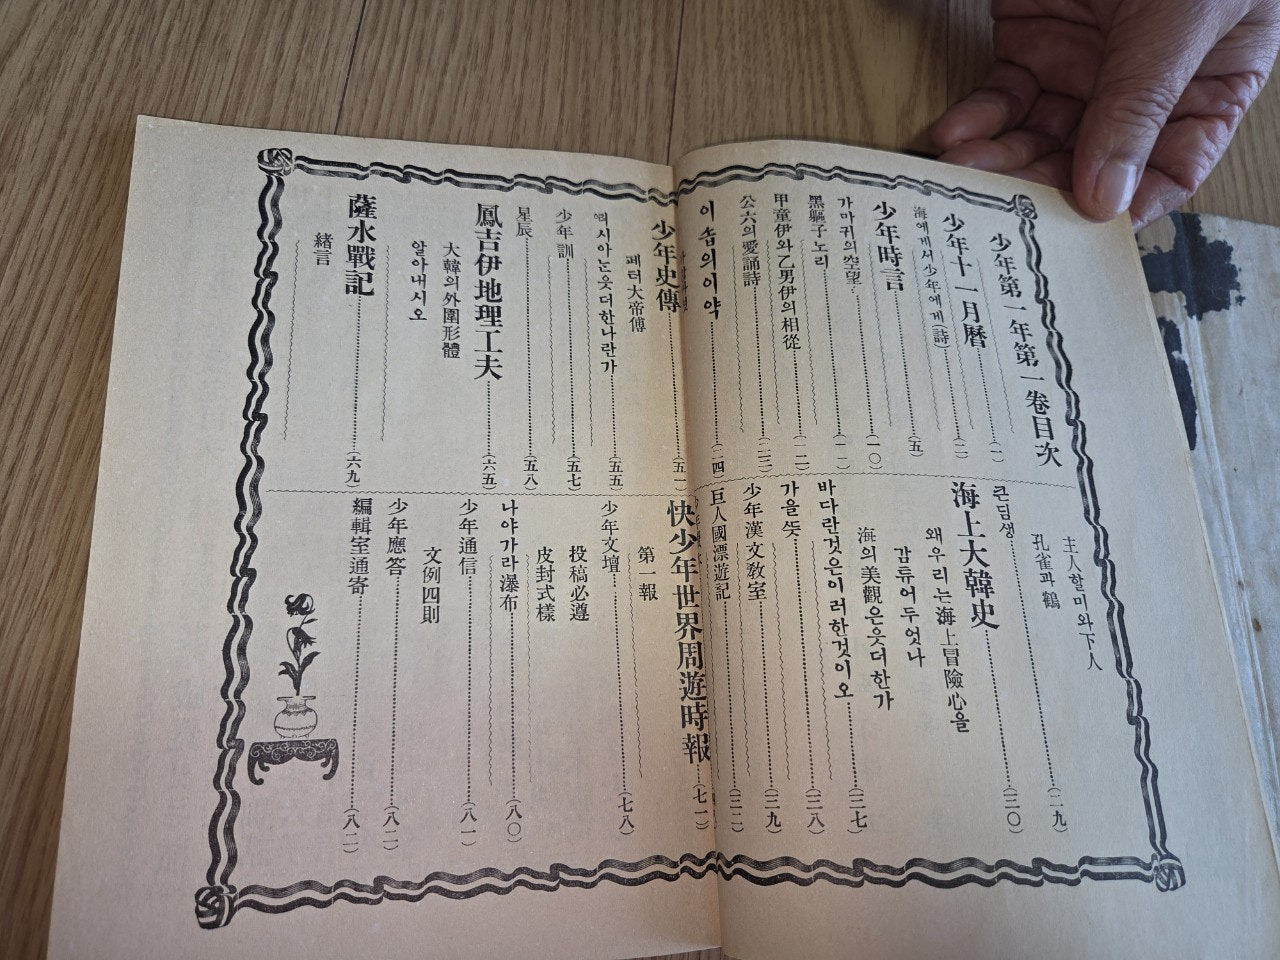 少年第一年第一卷目次
少年十一月曆……(一)
海에게서少年에게(詩)……(二)
少年時言……(五)
가마귀의空望……(一〇)
黑軀子노리……(一一)
甲童伊와乙男伊의相從……(一二)
公六의愛誦詩……(二三)
이솝의이약……(二四)
主人할미와下人
孔雀과鶴……(二九)
큰딤생……(三〇)
海上大韓史……(三〇)
왜우리는海上冒險心을
감튜어두엇나
海의美觀은읏더한가
바다란것은이러한것이오……(三七)
가을뜻……(三八)
少年漢文敎室……(三九)
巨人國漂遊記
少年史傳……(五一)
페터大帝傳
러시아는읏더한나란가……(五五)
少年訓……(五七)
星辰……(五八)
鳳吉伊地理工夫……(六五)
大韓의外圍形體
알아내시오
薩水戰記……(六九)
緖言
快少年世界周遊時報……(七一)
第一報
少年文壇……(七八)
投稿必遵
皮封式樣
나야가라瀑布……(八〇)
少年通信……(八一)
文例四則
少年應答……(八二)
編輯室通寄